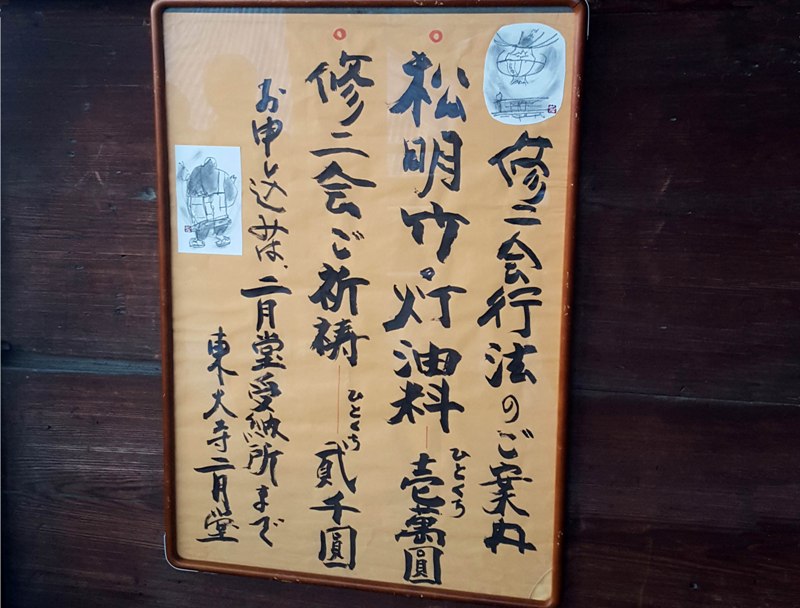 修二会行法のご案内
松明竹・灯油料 ひとくち 壱萬圓
修二会ご祈祷 ひとくち 貳千圓
お申し込みは、二月堂受納所まで
東大寺二月堂